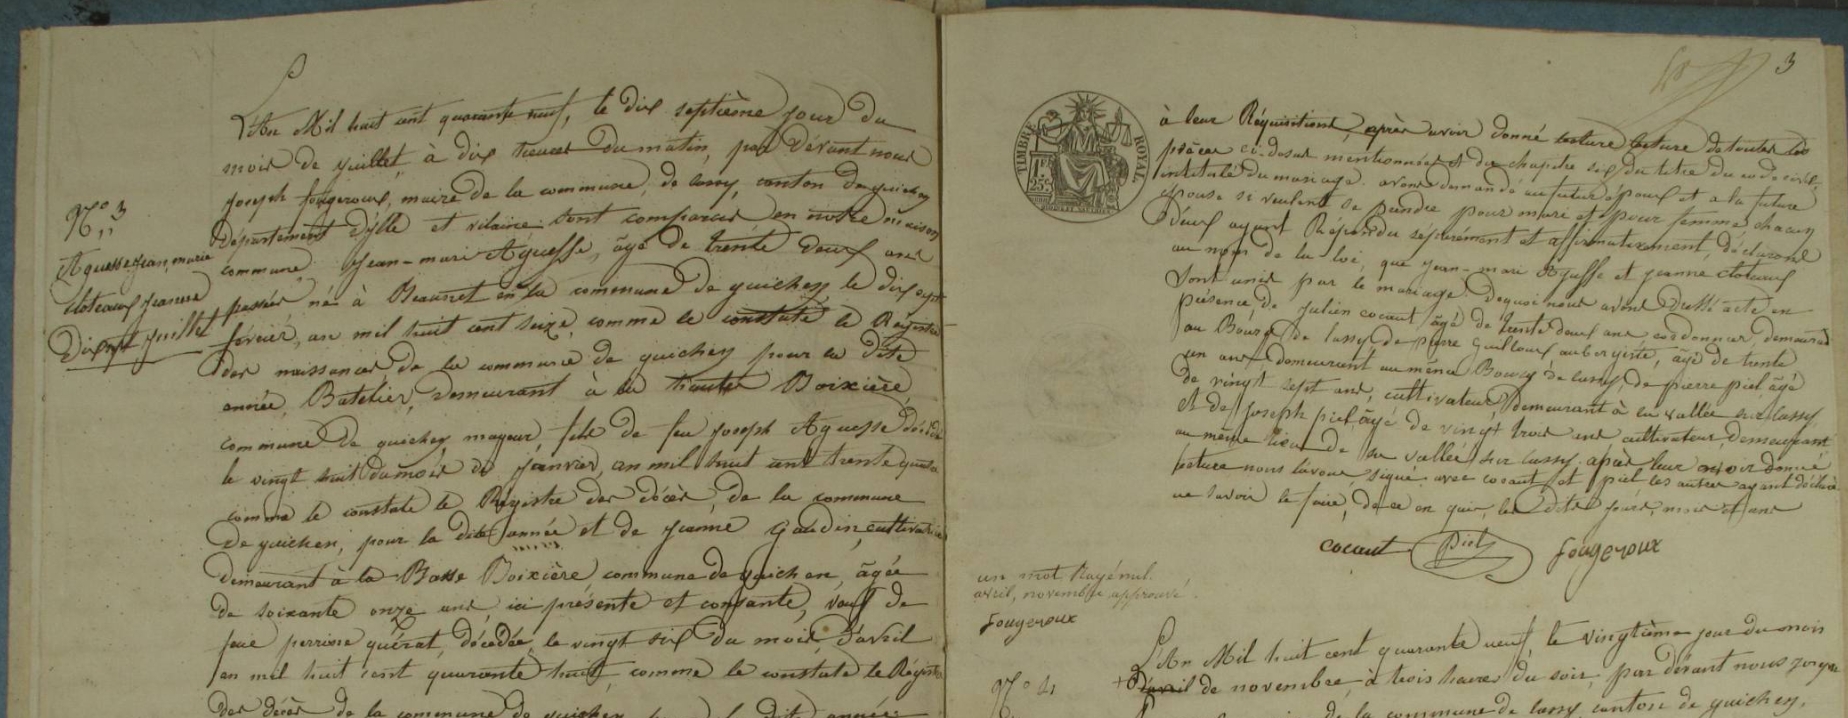 N.° 3
Aguesse Jean, marie
Cloteaux jeanne
Dix sept juillet
L'An Mil huit cent quarante neuf, le dix septième jour du
mois de juillet, à dix heures du matin, par Dévant nous
joseph fougeroux, maire de la commune, de lassy, canton de guichen
Département d'ylle et vilaine sont comparus en notre maison
commune jean-marie Aguesse, âgé de trente deux ans
passés né à Beauvet en la commune de guichen, le dix sept
fevrier, an mil huit cent seize, comme le constate le Régistre
des naissances de la commune de guichen pour la dite
année, Batelier, demeurant à la haute Boixière,
commune de guichen mayeur, fils de feu joseph Aguesse décédé
le vingt huit du mois de janvier, an mil huit cent trente quatre
comme le constate le Registre des décès, de la commune
De guichen, pour la dite année et de jeanne gaudin, cultivatrice
demeurant à la Basse Boixière, commune de guichen, âgée
de soixante onze ans, ici présente et consante, veuf de
feue perrine quérat, décédée, le vingt six du mois, d'avril
an mil huit cent quarante huit, comme le constate le Régistre
des décès de la commune de guichen, pour la dite année
3
TIMBRE ROYAL
1F. 25c
à leur Réquisitions, après avoir donné lecture lecture de toutes les
pièces ci-dessus mentionnées et du chapitre six du titre du code civil
intitulé du mariage. avons demandé au futur époux et a la future
épouse si veulent se prendre pour mari et pour femme chacun
D'eux ayant Répondu séparément et affirmativement, déclarons
au nom de la loi, que jean-marie Aguesse et jeanne cloteaux
sont unis par le mariage. De quoi nous avons Dressé acte en
présence de Julien cocaut, âgé de trente deux ans cordonnier, demeurant
au Bourg de lassy de pierre Guilloux aubergiste, âgé de trente
un ans demeurant au même Bourg de lassy, de pierre piel, âgé
de vingt sept ans, cultivateur, demeurant à la vallée sur lassy,
et de joseph piel, âgé de vingt trois ans cultivateur, demeurant
au même lieu de la vallée sur lassy. après leur avoir donné
lecture nous l'avons signé avec cocaut et piel les autres ayant déclaré
ne savoir le faire, de ce en quis, les Dits jours, mois et ans
cocaut Piel fougeroux
un mot Rayé nul.
avril, novembre, approuvé.
fougeroux
N.° 4
L'An Mil huit cent quarante neuf, le vingtième jour du mois
+ D'avril de novembre, à trois heures du soir, par dévant nous joseph
de la commune de lassy, canton de guichen,